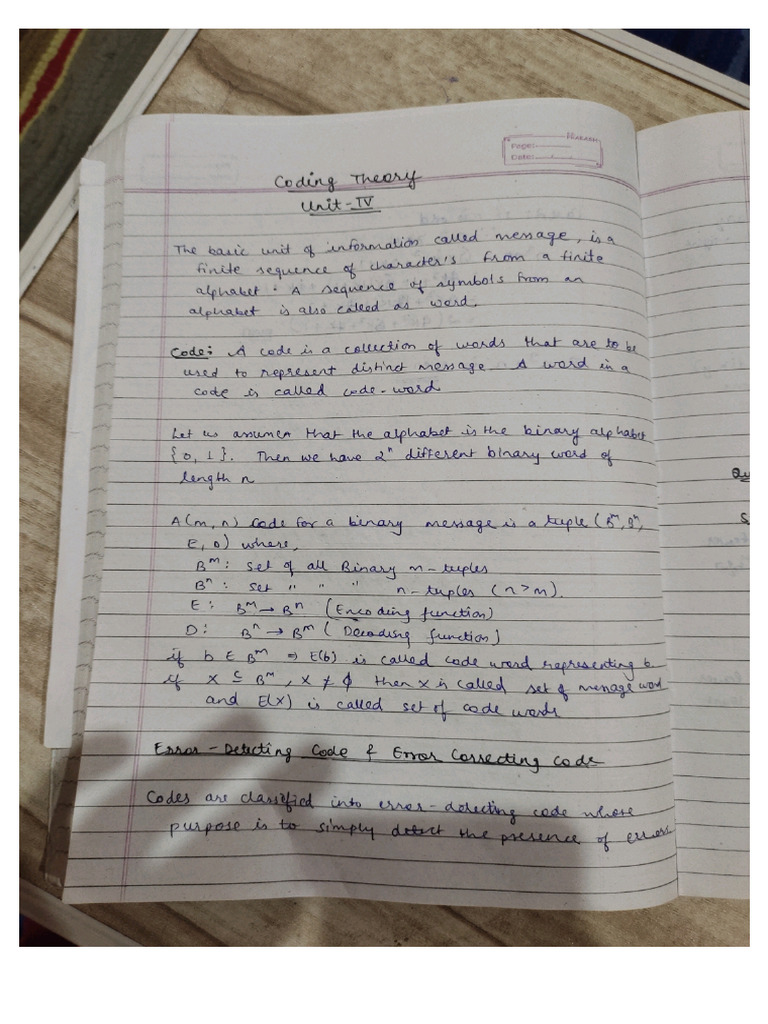 PRAKASH
Page:
Date:
Coding Theory
Unit-IV
The basic unit of information called message, is a
finite sequence of character's from a finite
alphabet. A sequence of symbols from an
alphabet is also called as word.
Code: A code is a collection of words that are to be
used to represent distinct message. A word in a
code is called code-word
Let us assume that the alphabet is the binary alphabet
{0, 1}. Then we have 2ⁿ different binary word of
length n
A (m, n) Code for a binary message is a tuple (Bᵐ, Bⁿ,
E, D) where,
Bᵐ: Set of all Binary m-tuples
Bⁿ: Set " " " n-tuples (n>m).
E: Bᵐ → Bⁿ (Encoding function)
D: Bⁿ → Bᵐ (Decoding function)
if b ∈ Bᵐ ⇒ E(b) is called code word representing b
if X ⊆ Bᵐ, X ≠ ϕ then X is called set of message word
and E(X) is called set of code words
Error-Detecting Code & Error Correcting Code
Codes are classified into error-detecting code whose
purpose is to simply detect the presence of errors